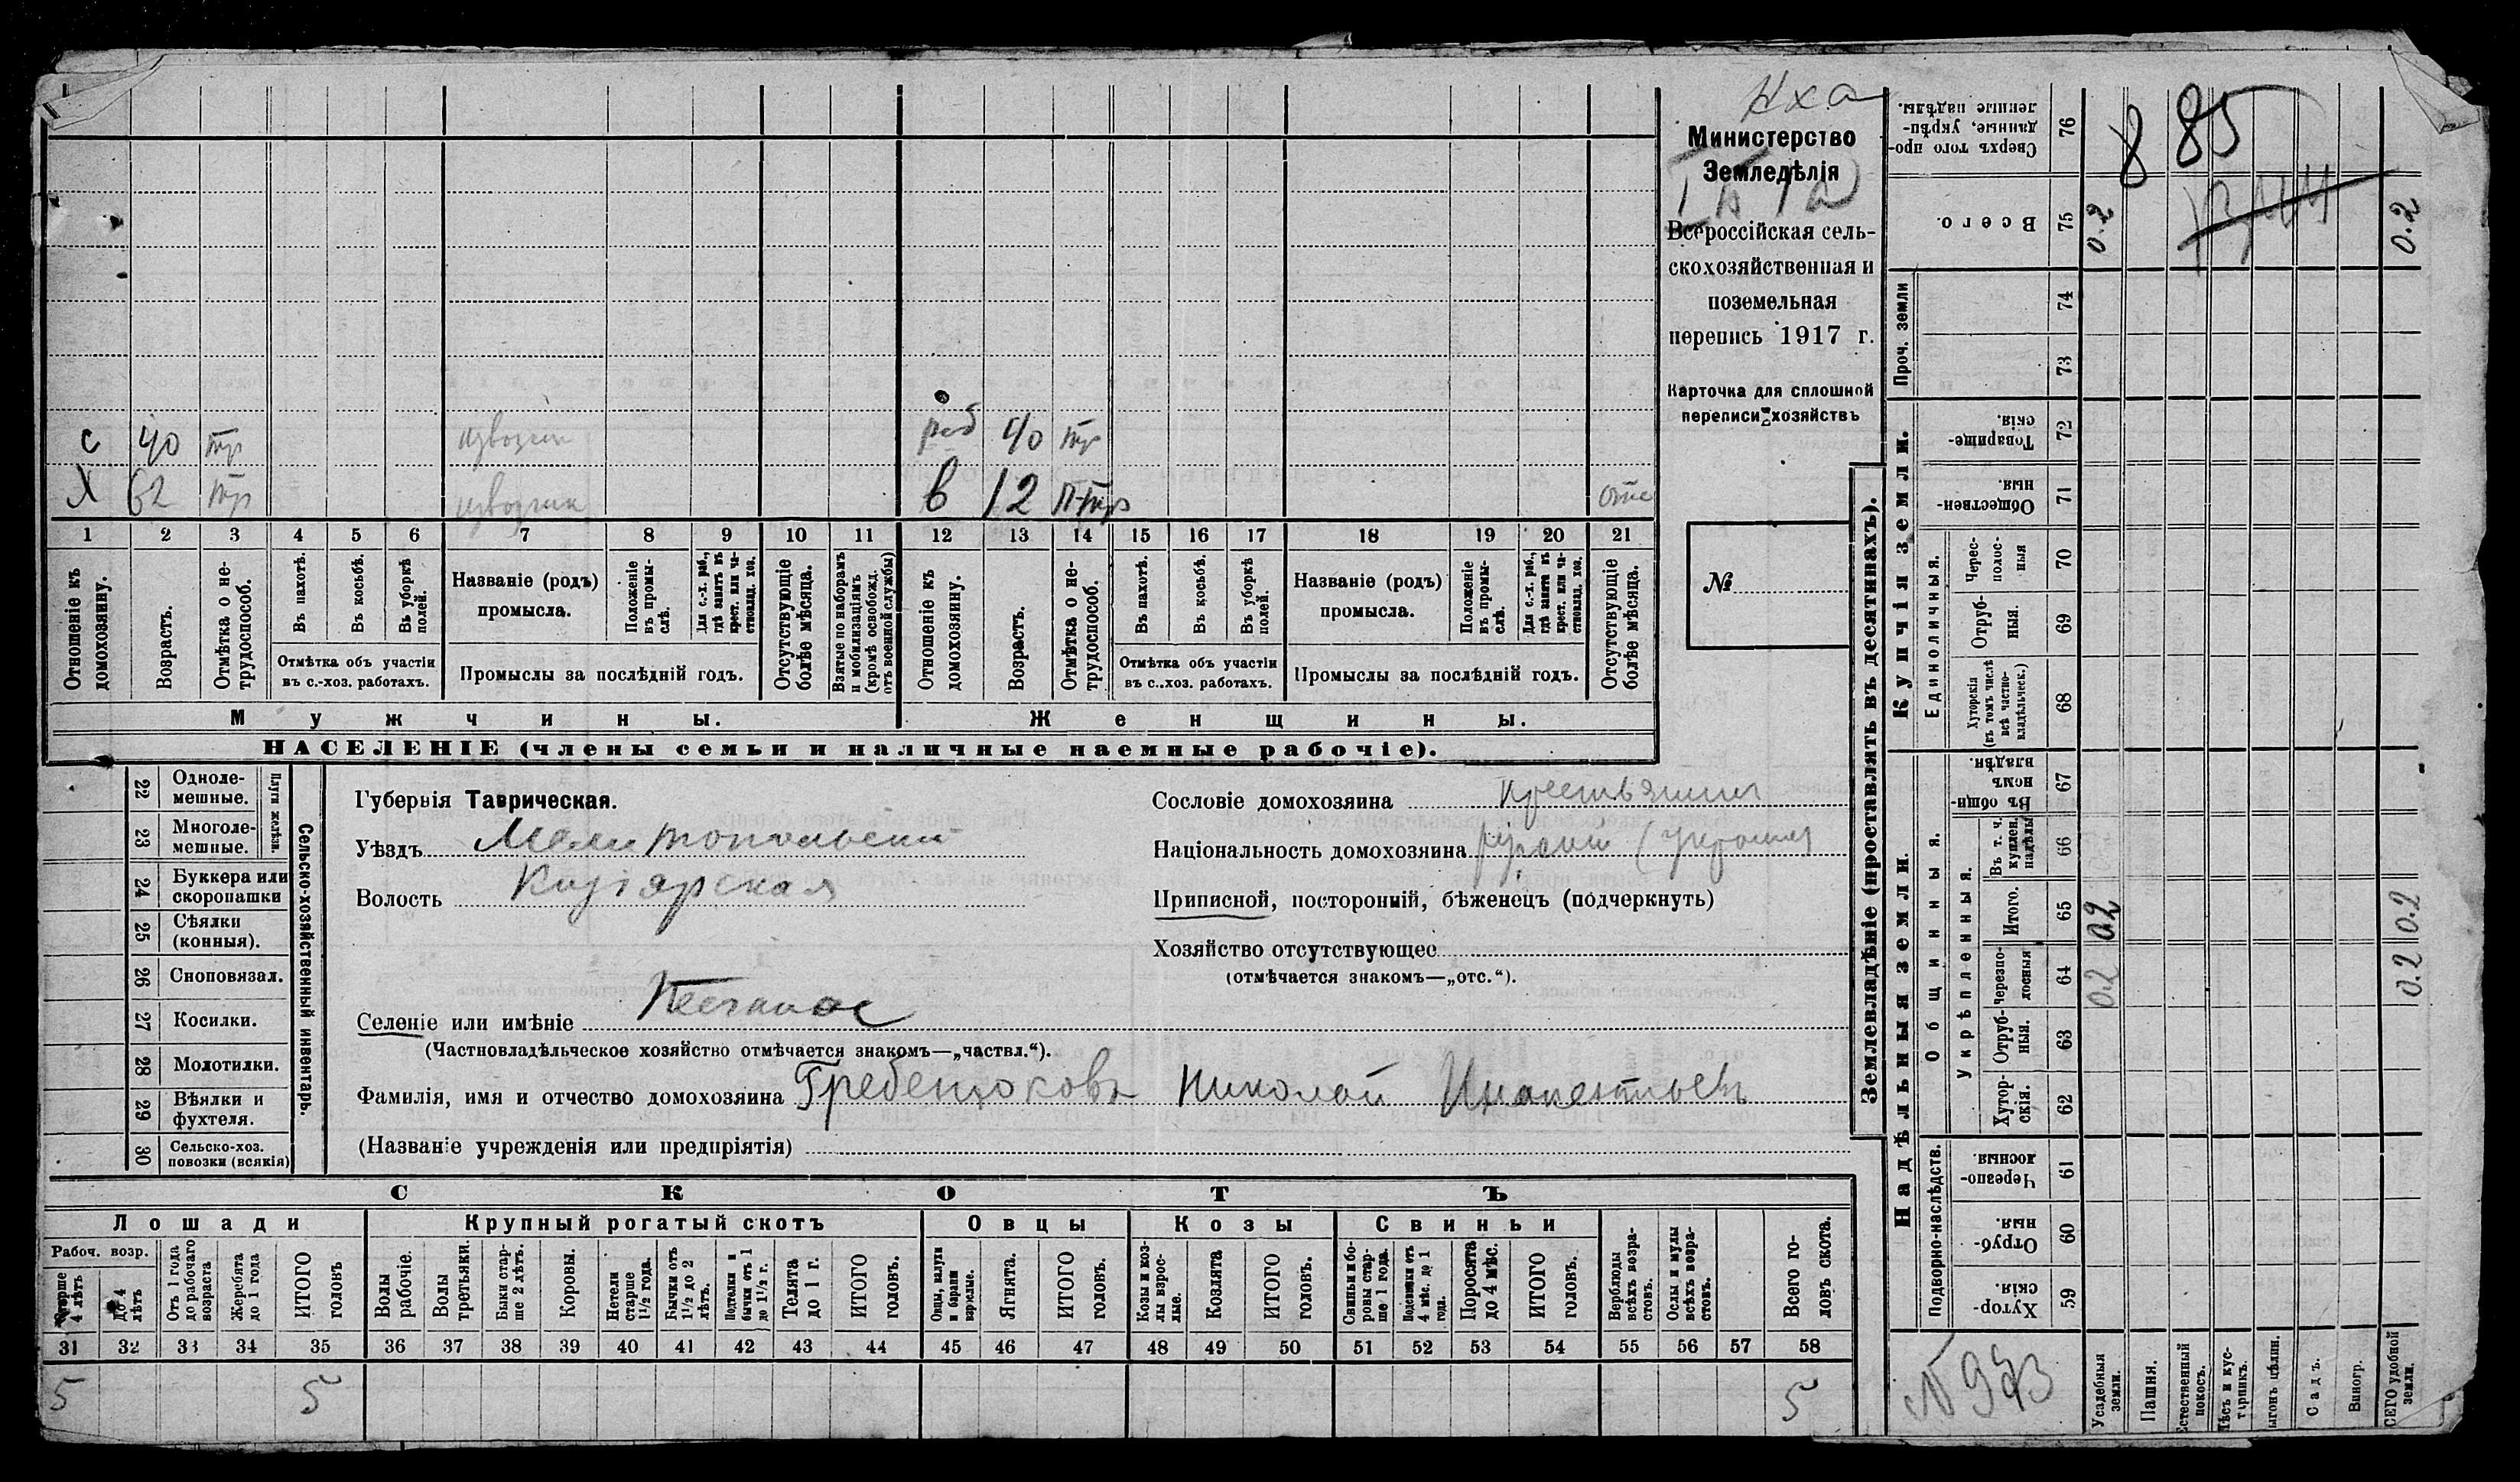 Министерство
Земледѣлія
Всероссійская сель-
скохозяйственная и
поземельная
перепись 1917 г.
Карточка для сплошной
переписи хозяйствъ
№
с 40 тр извозчик
раб 40 тр
Х 62 тр извозчик
в 12 п-тр отс
1 2 3 4 5 6 7 8 9 10 11 12 13 14 15 16 17 18 19 20 21
Отношеніе къ домохозяину.
Возрастъ.
Отмѣтка о не-трудоспособ.
Въ пахотѣ.
Въ косьбѣ.
Въ уборкѣ полей.
Отмѣтка объ участіи
въ с.-хоз. работахъ.
Названіе (родъ)
промысла.
Положеніе въ промы-слѣ.
Для с.-х. раб., гдѣ занятъ въ крест. или ча-стновлад. хоз.
Промыслы за послѣдній годъ.
Отсутствующіе болѣе мѣсяца.
Взятые по наборамъ и мобилизаціямъ (кромѣ освобожд. отъ военной службы)
Отношеніе къ домохозяину.
Возрастъ.
Отмѣтка о не-трудоспособ.
Въ пахотѣ.
Въ косьбѣ.
Въ уборкѣ полей.
Отмѣтка объ участіи
въ с..хоз. работахъ.
Названіе (родъ)
промысла.
Положеніе въ промы-слѣ.
Для с.-х. раб., гдѣ занята въ крест. или ча-стновлад. хоз.
Промыслы за послѣдній годъ.
Отсутствующіе болѣе мѣсяца.
Мужчины.
Женщины.
НАСЕЛЕНІЕ (члены семьи и наличные наемные рабочіе).
Сельско-хозяйственный инвентарь.
Плуги желѣзн.
22 Одноле-мешные.
23 Многоле-мешные.
24 Буккера или скоропашки
25 Сѣялки (конныя).
26 Сноповязал.
27 Косилки.
28 Молотилки.
29 Вѣялки и фухтеля.
30 Сельско-хоз. повозки (всякія)
Губернія Таврическая.
Уѣздъ Мелитопольский
Волость Кизіярская
Селеніе или имѣніе
(Частновладѣльческое хозяйство отмѣчается знакомъ—„частвл.“).
Сословіе домохозяина крестьянин
Національность домохозяина
Приписной, посторонній, бѣженецъ (подчеркнуть)
Хозяйство отсутствующее
(отмѣчается знакомъ—„отс.“).
Фамилія, имя и отчество домохозяина Гребенюковъ Николай
(Названіе учрежденія или предпріятія)
СКОТЪ
Лошади
Крупный рогатый скотъ
Овцы
Козы
Свиньи
Рабоч. возр.
Старше 4 лѣтъ
до 4 лѣтъ
Отъ 1 года до рабочаго возраста
Жеребята до 1 года
ИТОГО головъ
Волы рабочіе.
Волы третьяки.
Быки стар-ше 2 лѣтъ.
Коровы.
Нетели старше 1½ года.
Бычки отъ 1½ до 2 лѣтъ.
Подтелки и бычки отъ 1 до 1½ г.
Телята до 1 г.
ИТОГО головъ.
Овцы, валухи и бараны взрослые.
Ягнята.
ИТОГО головъ.
Козы и коз-лы взрос-лые.
Козлята
ИТОГО головъ.
Свиньи и бо-ровы стар-ше 1 года.
Подсвинки отъ 4 мѣс. до 1 года.
Поросята до 4 мѣс.
ИТОГО головъ.
Верблюды всѣхъ возра-стовъ.
Ослы и мулы всѣхъ возра-стовъ.
Всего го-ловъ скота.
31 32 33 34 35 36 37 38 39 40 41 42 43 44 45 46 47 48 49 50 51 52 53 54 55 56 57 58
5 5 5
Землевладѣніе (проставлять въ десятинахъ).
Надѣльныя земли.
Купчія земли.
Проч. земли
Подворно-наслѣдств.
Общинныя.
Укрѣпленныя.
Единоличныя.
Хутор-скія. 59
Отруб-ныя. 60
Черезпо-лосныя. 61
Хутор-скія. 62
Отруб-ныя. 63
Черезпо-лосныя 64
Итого. 65
Въ т. ч. куплен. надѣлы 66
Въ общи-номъ владѣн. 67
Хуторскія (въ томъ числѣ всѣ частно-владѣльческ.) 68
Отруб-ныя. 69
Черес-полос-ныя 70
Обществен-ныя. 71
Товарище-скія. 72
73
74
Всего. 75
Сверхъ того про-данные, укрѣп-ленные надѣлы. 76
Усадебныя земли.
Пашня.
Естественный покосъ.
Лѣсъ и кус-тарникъ.
Выгонъ цѣлин.
Садъ.
Виногр.
ВСЕГО удобной земли.
0.2 0.2 0.2
0.2 0.2 0.2
8 85